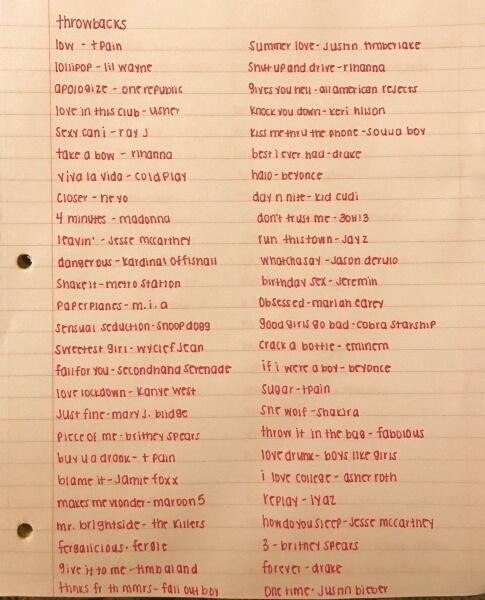 throwbacks
low - t pain
lollipop - lil wayne
apologize - onerepublic
love in this club - usher
sexy can i - ray j
take a bow - rihanna
viva la vida - coldplay
closer - neyo
4 minutes - madonna
leavin' - jesse mccartney
dangerous - kardinal offishall
shake it - metro station
paperplanes - m.i.a
sensual seduction - snoop dogg
sweetest girl - wyclef jean
fall for you - secondhand serenade
love lockdown - kanye west
just fine - mary j. blidge
piece of me - britney spears
buy u a drank - t pain
blame it - jamie foxx
makes me wonder - maroon 5
mr. brightside - the killers
fergalicious - fergie
give it to me - timbaland
thnks fr th mmrs - fall out boy
summer love - justin timberlake
shut up and drive - rihanna
gives you hell - all american rejects
knock you down - keri hilson
kiss me thru the phone - soulja boy
best i ever had - drake
halo - beyonce
day n nite - kid cudi
don't trust me - 3oh!3
run this town - jay z
whatcha say - jason derulo
birthday sex - jeremih
obsessed - mariah carey
good girls go bad - cobra starship
crack a bottle - eminem
if i were a boy - beyonce
sugar - t pain
she wolf - shakira
throw it in the bag - fabolous
love drunk - boys like girls
i love college - asher roth
replay - iyaz
how do you sleep - jesse mccartney
3 - britney spears
forever - drake
one time - justin bieber